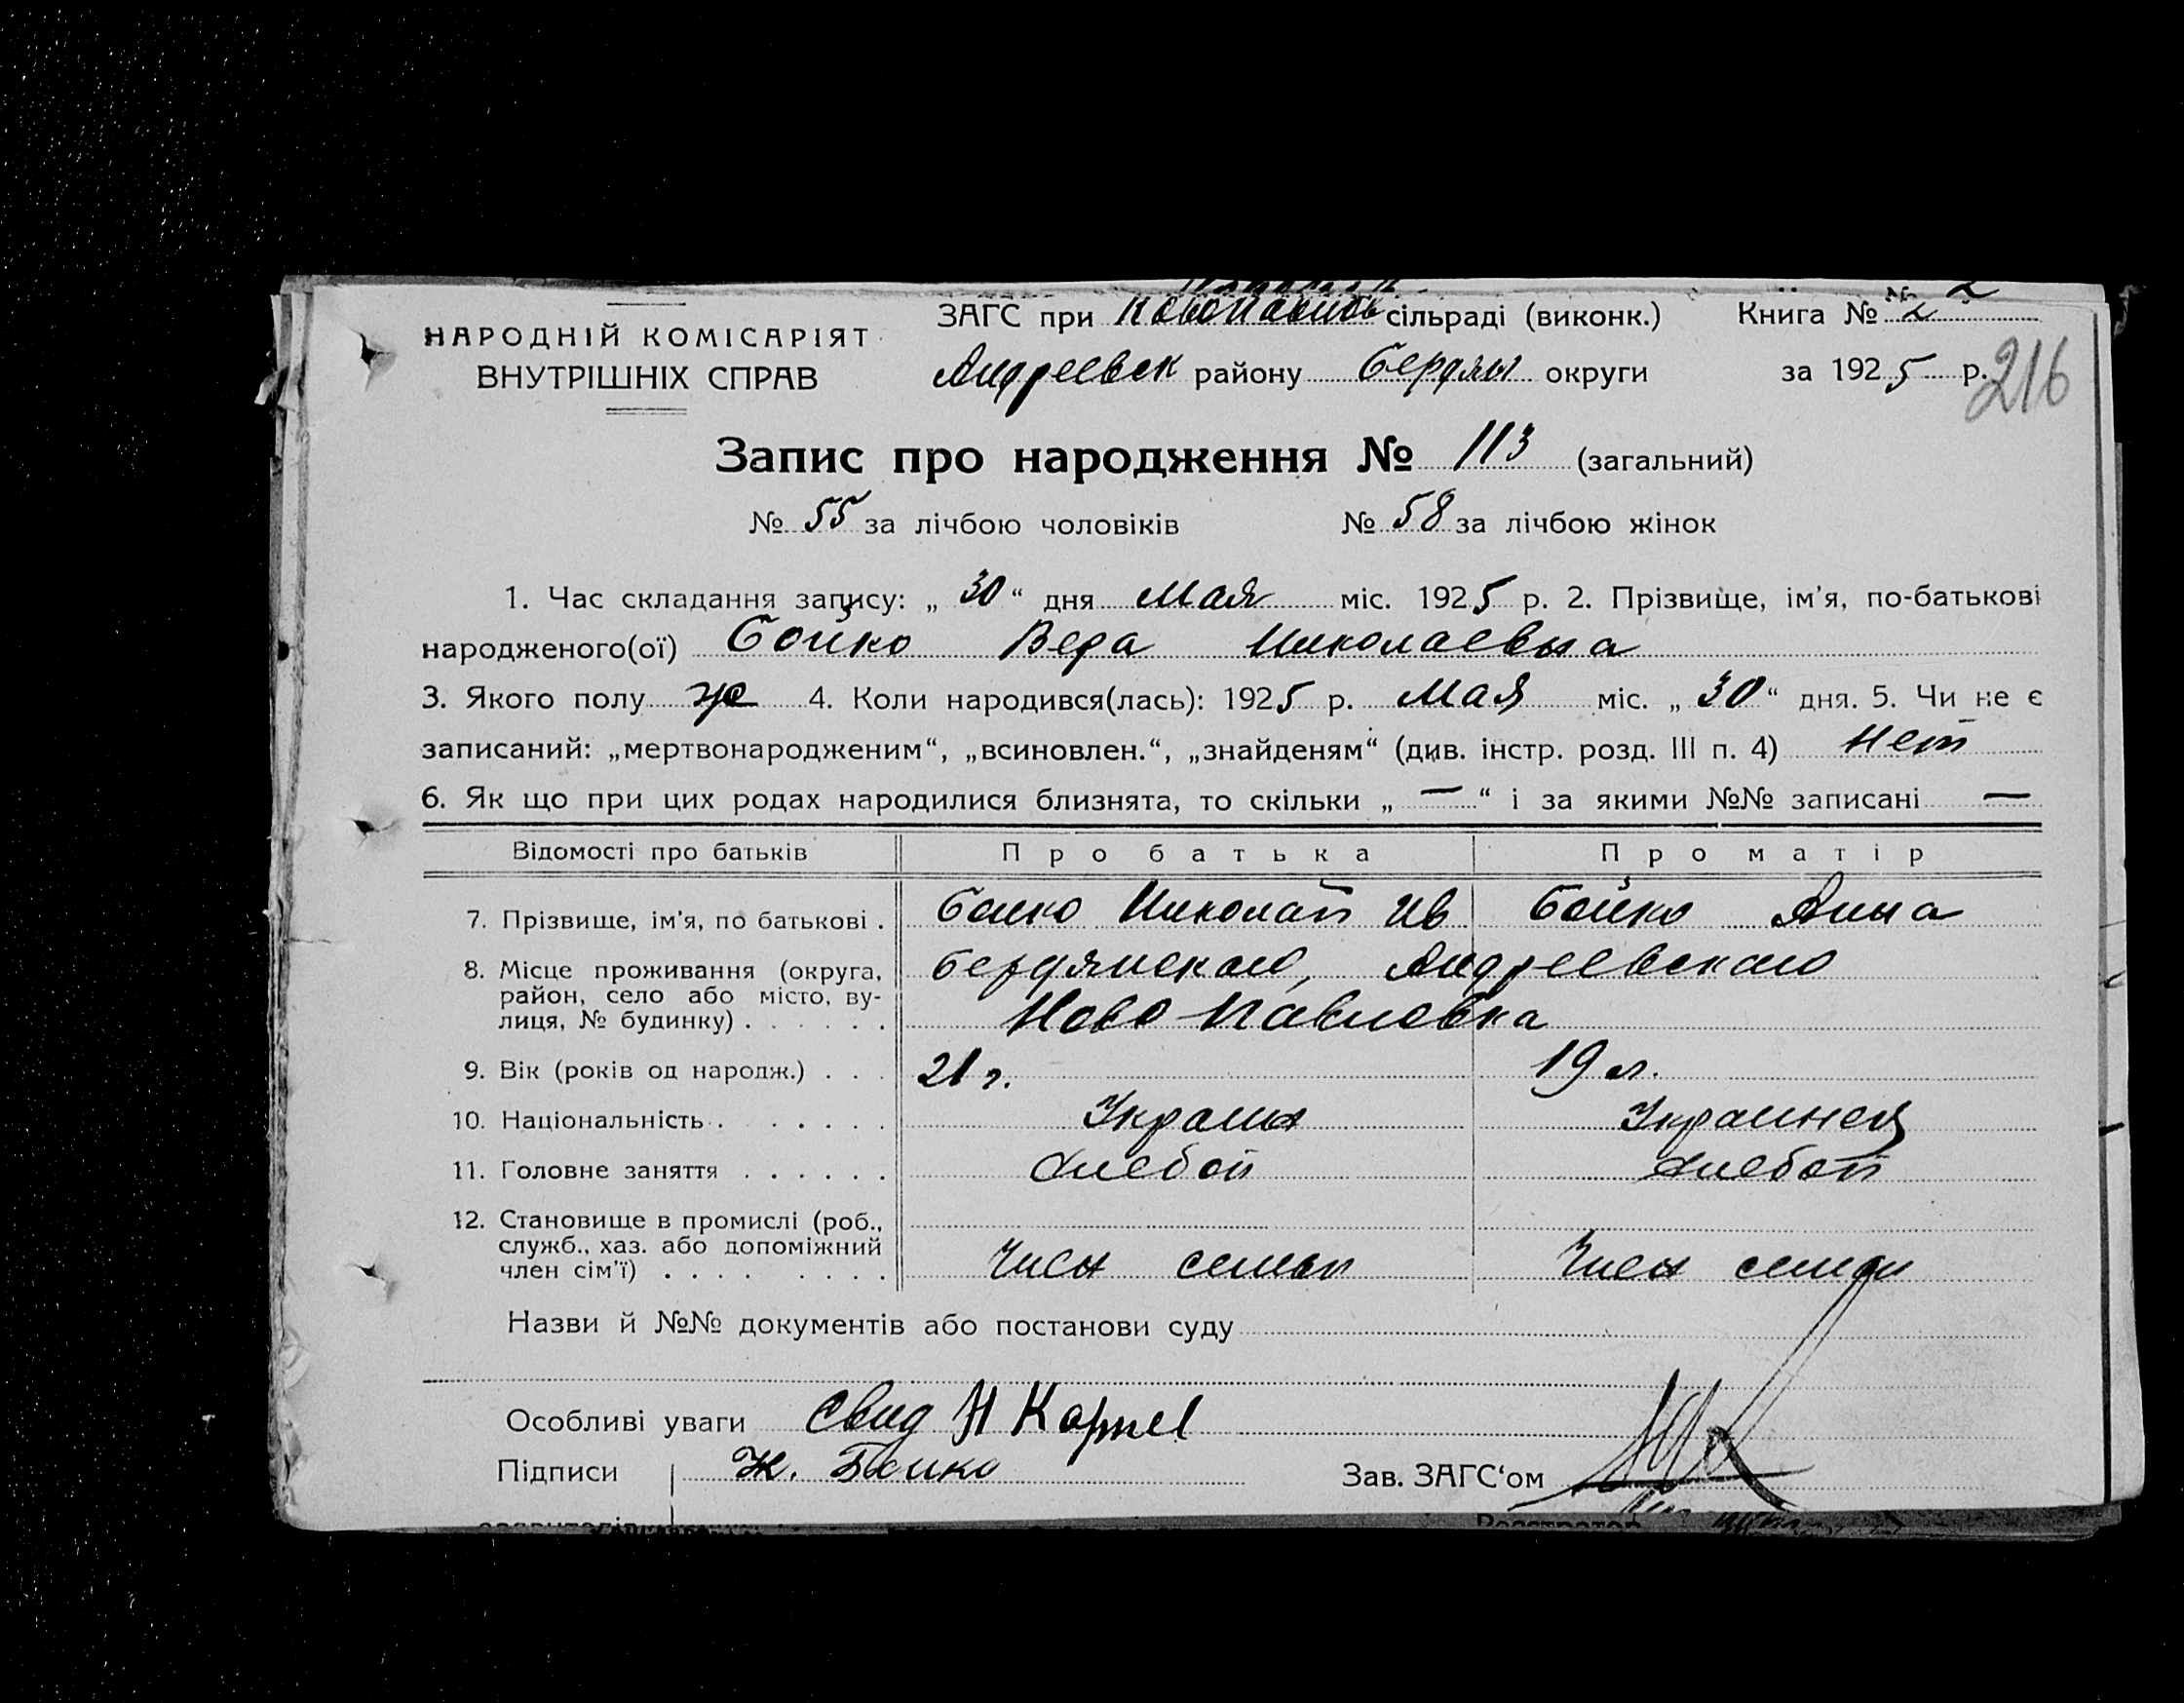 НАРОДНІЙ КОМІСАРІЯТ
ВНУТРІШНІХ СПРАВ
ЗАГС при Новопавлов сільраді (виконк.)
Андреевск району Бердян округи
Книга № 2
за 1925 р.
216
Запис про народження № 113 (загальний)
№ 55 за лічбою чоловіків № 58 за лічбою жінок
1. Час складання запису: „ 30 “ дня Мая міс. 1925 р. 2. Прізвище, ім'я, по-батькові
народженого(ої) Бойко Вера Николаевна
3. Якого полу ж 4. Коли народився(лась): 1925 р. Мая міс. „ 30 “ дня. 5. Чи не є
записаний: „мертвонародженим“, „всиновлен.“, „знайденям“ (див. інстр. розд. III п. 4) Нет
6. Як що при цих родах народилися близнята, то скільки „ — “ і за якими №№ записані —
Відомості про батьків Про батька Про матір
7. Прізвище, ім'я, по батькові . Бойко Николай Ив Бойко Анна
8. Місце проживання (округа, Бердянского, Андреевского
район, село або місто, ву-
лиця, № будинку) . . . . . . Ново Павловка
9. Вік (років од народж.) . . . 21 г. 19 л.
10. Національність . . . . . . Украин
11. Головне заняття . . . . . . Хлебоп Хлебоп
12. Становище в промислі (роб.,
служб., хаз. або допоміжний
член сім'ї) . . . . . . . . Член семьи Член семьи
Назви й №№ документів або постанови суду
Особливі уваги Свид Н
Підписи Бойко
Зав. ЗАГС‘ом
Реєстратор